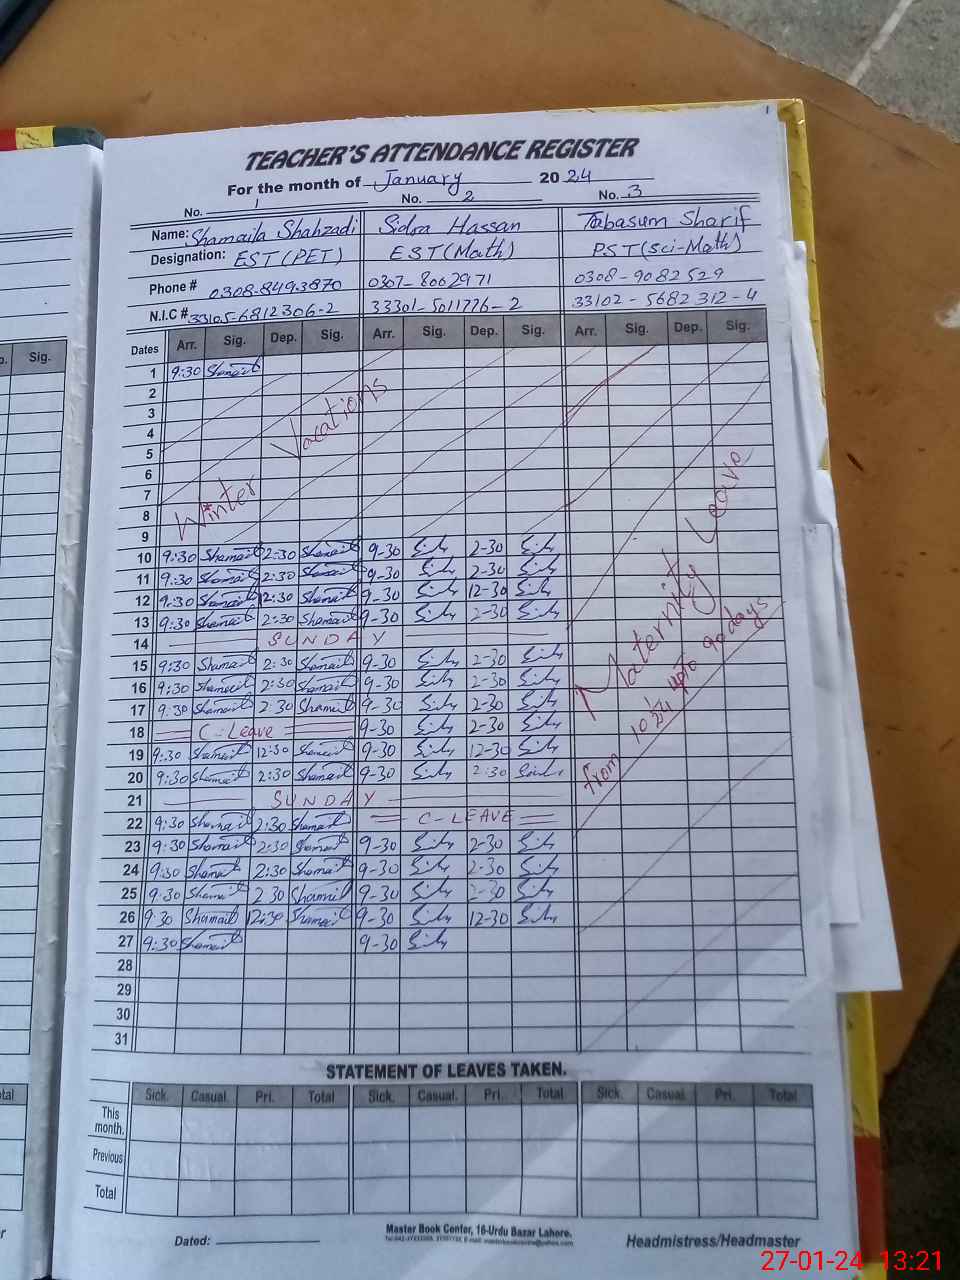 TEACHER'S ATTENDANCE REGISTER
For the month of January 2024
No. 1 No. 2 No. 3
Name: Shamaila Shahzadi Sidra Hassan Tabasum Sharif
Designation: EST (PET) EST (Math) PST (Sci-Math)
Phone # 0308-8493870 0307-8002971 0308-9082529
N.I.C # 33105-6812306-2 33301-5011776-2 33102-5682312-4
Dates Arr. Sig. Dep. Sig. Arr. Sig. Dep. Sig. Arr. Sig. Dep. Sig.
Sig.
1 9:30 Shamail
2
3
4
5
6
7
8
9
Winter Vacations
10 9:30 Shamail 2:30 Shamail 9-30 2-30
11 9:30 Shamail 2:30 Shamail 9-30 2-30
12 9:30 Shamail 12:30 Shamail 9-30 12-30
13 9:30 Shamail 2:30 Shamail 9-30 2-30
14 SUNDAY
15 9:30 Shamail 2:30 Shamail 9-30 2-30
16 9:30 Shamail 2:30 Shamail 9-30 2-30
17 9:30 Shamail 2:30 Shamail 9-30 2-30
18 C-Leave 9-30 2-30
19 9:30 Shamail 12:30 Shamail 9-30 12-30
20 9:30 Shamail 2:30 Shamail 9-30 2:30
21 SUNDAY
22 9:30 Shamail 2:30 Shamail C-LEAVE
23 9:30 Shamail 2:30 Shamail 9-30 2-30
24 9:30 Shamail 2:30 Shamail 9-30 2-30
25 9:30 Shamail 2 30 Shamail 9-30 2-30
26 9:30 Shamail 12:30 Shamail 9-30 12-30
27 9:30 Shamail 9-30
28
29
30
31
Maternity Leave
from upto 90 days
STATEMENT OF LEAVES TAKEN.
Sick. Casual. Pri. Total Sick. Casual. Pri. Total Sick. Casual. Pri. Total
This month.
Previous
Total
Dated:
Master Book Center, 16-Urdu Bazar Lahore.
Headmistress/Headmaster
27-01-24 13:21